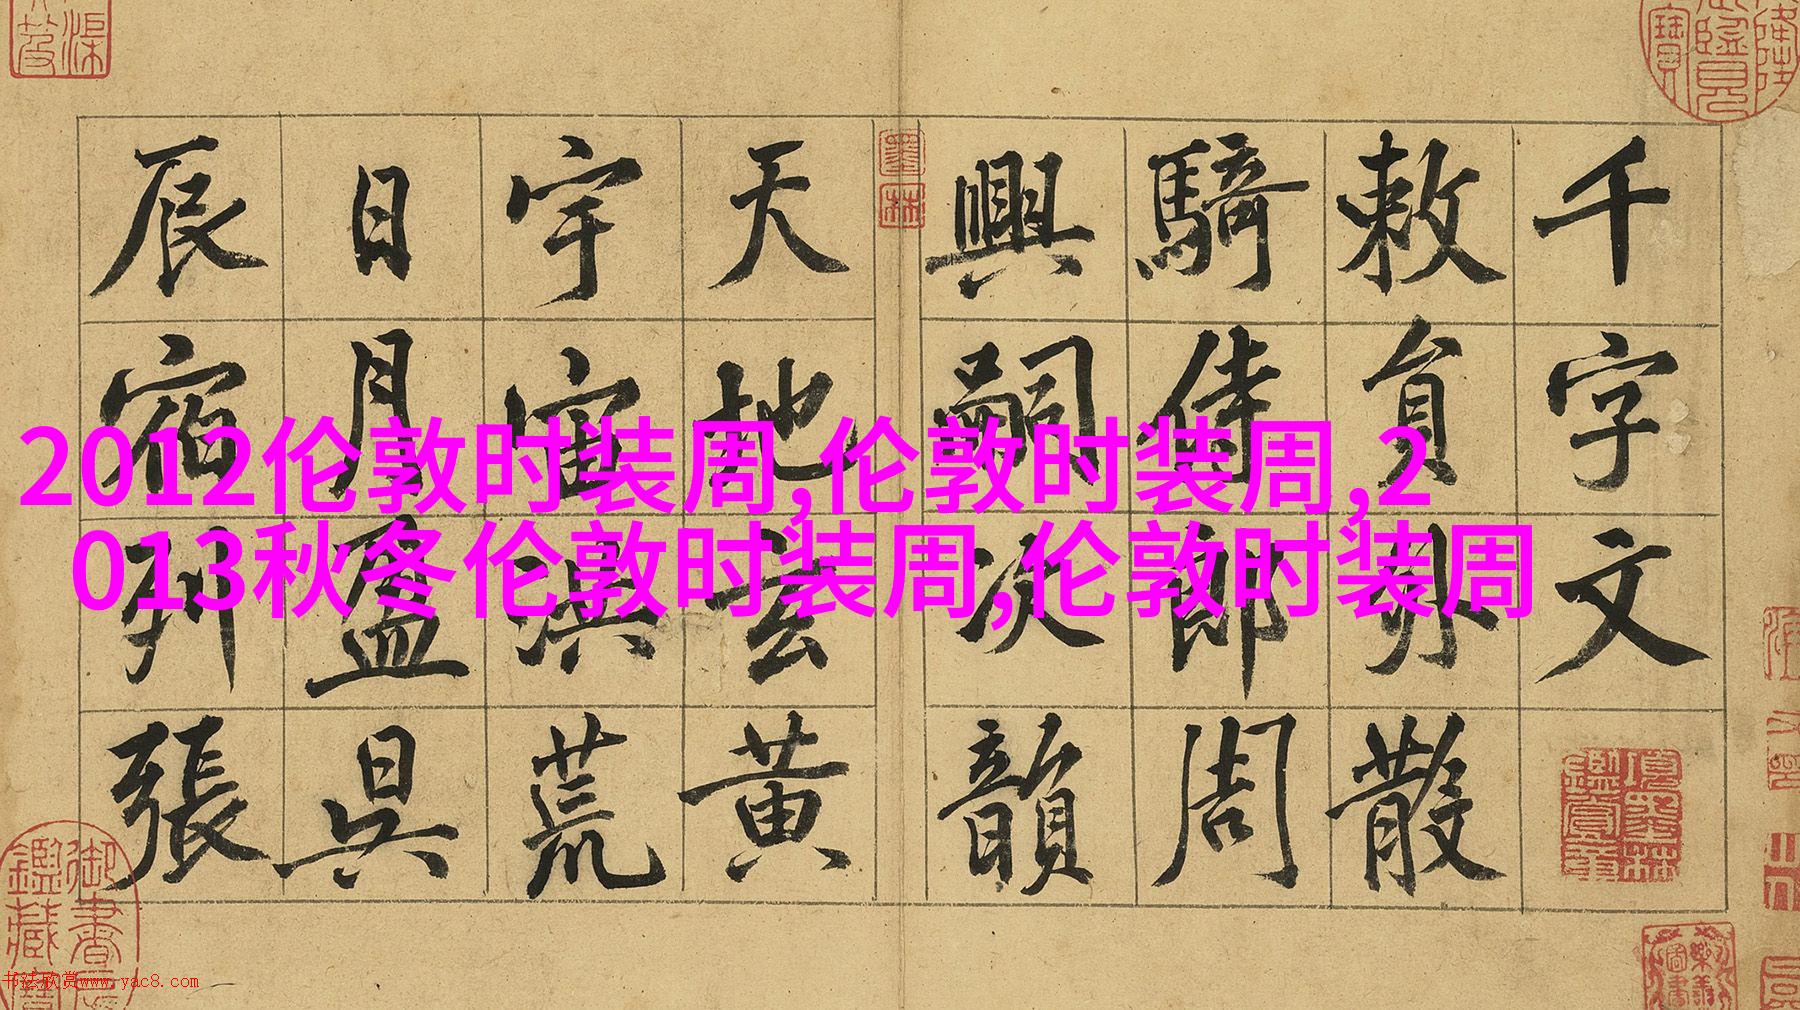 千字文
敕員外散
騎侍郎周
興嗣次韻
天地玄黃
宇宙洪荒
日月盈昃
辰宿列張
2012伦敦时装周,伦敦时装周,2
013秋冬伦敦时装周,伦敦时装周
墨林
項墨林鑑賞章
书法欣赏www.yac8.com